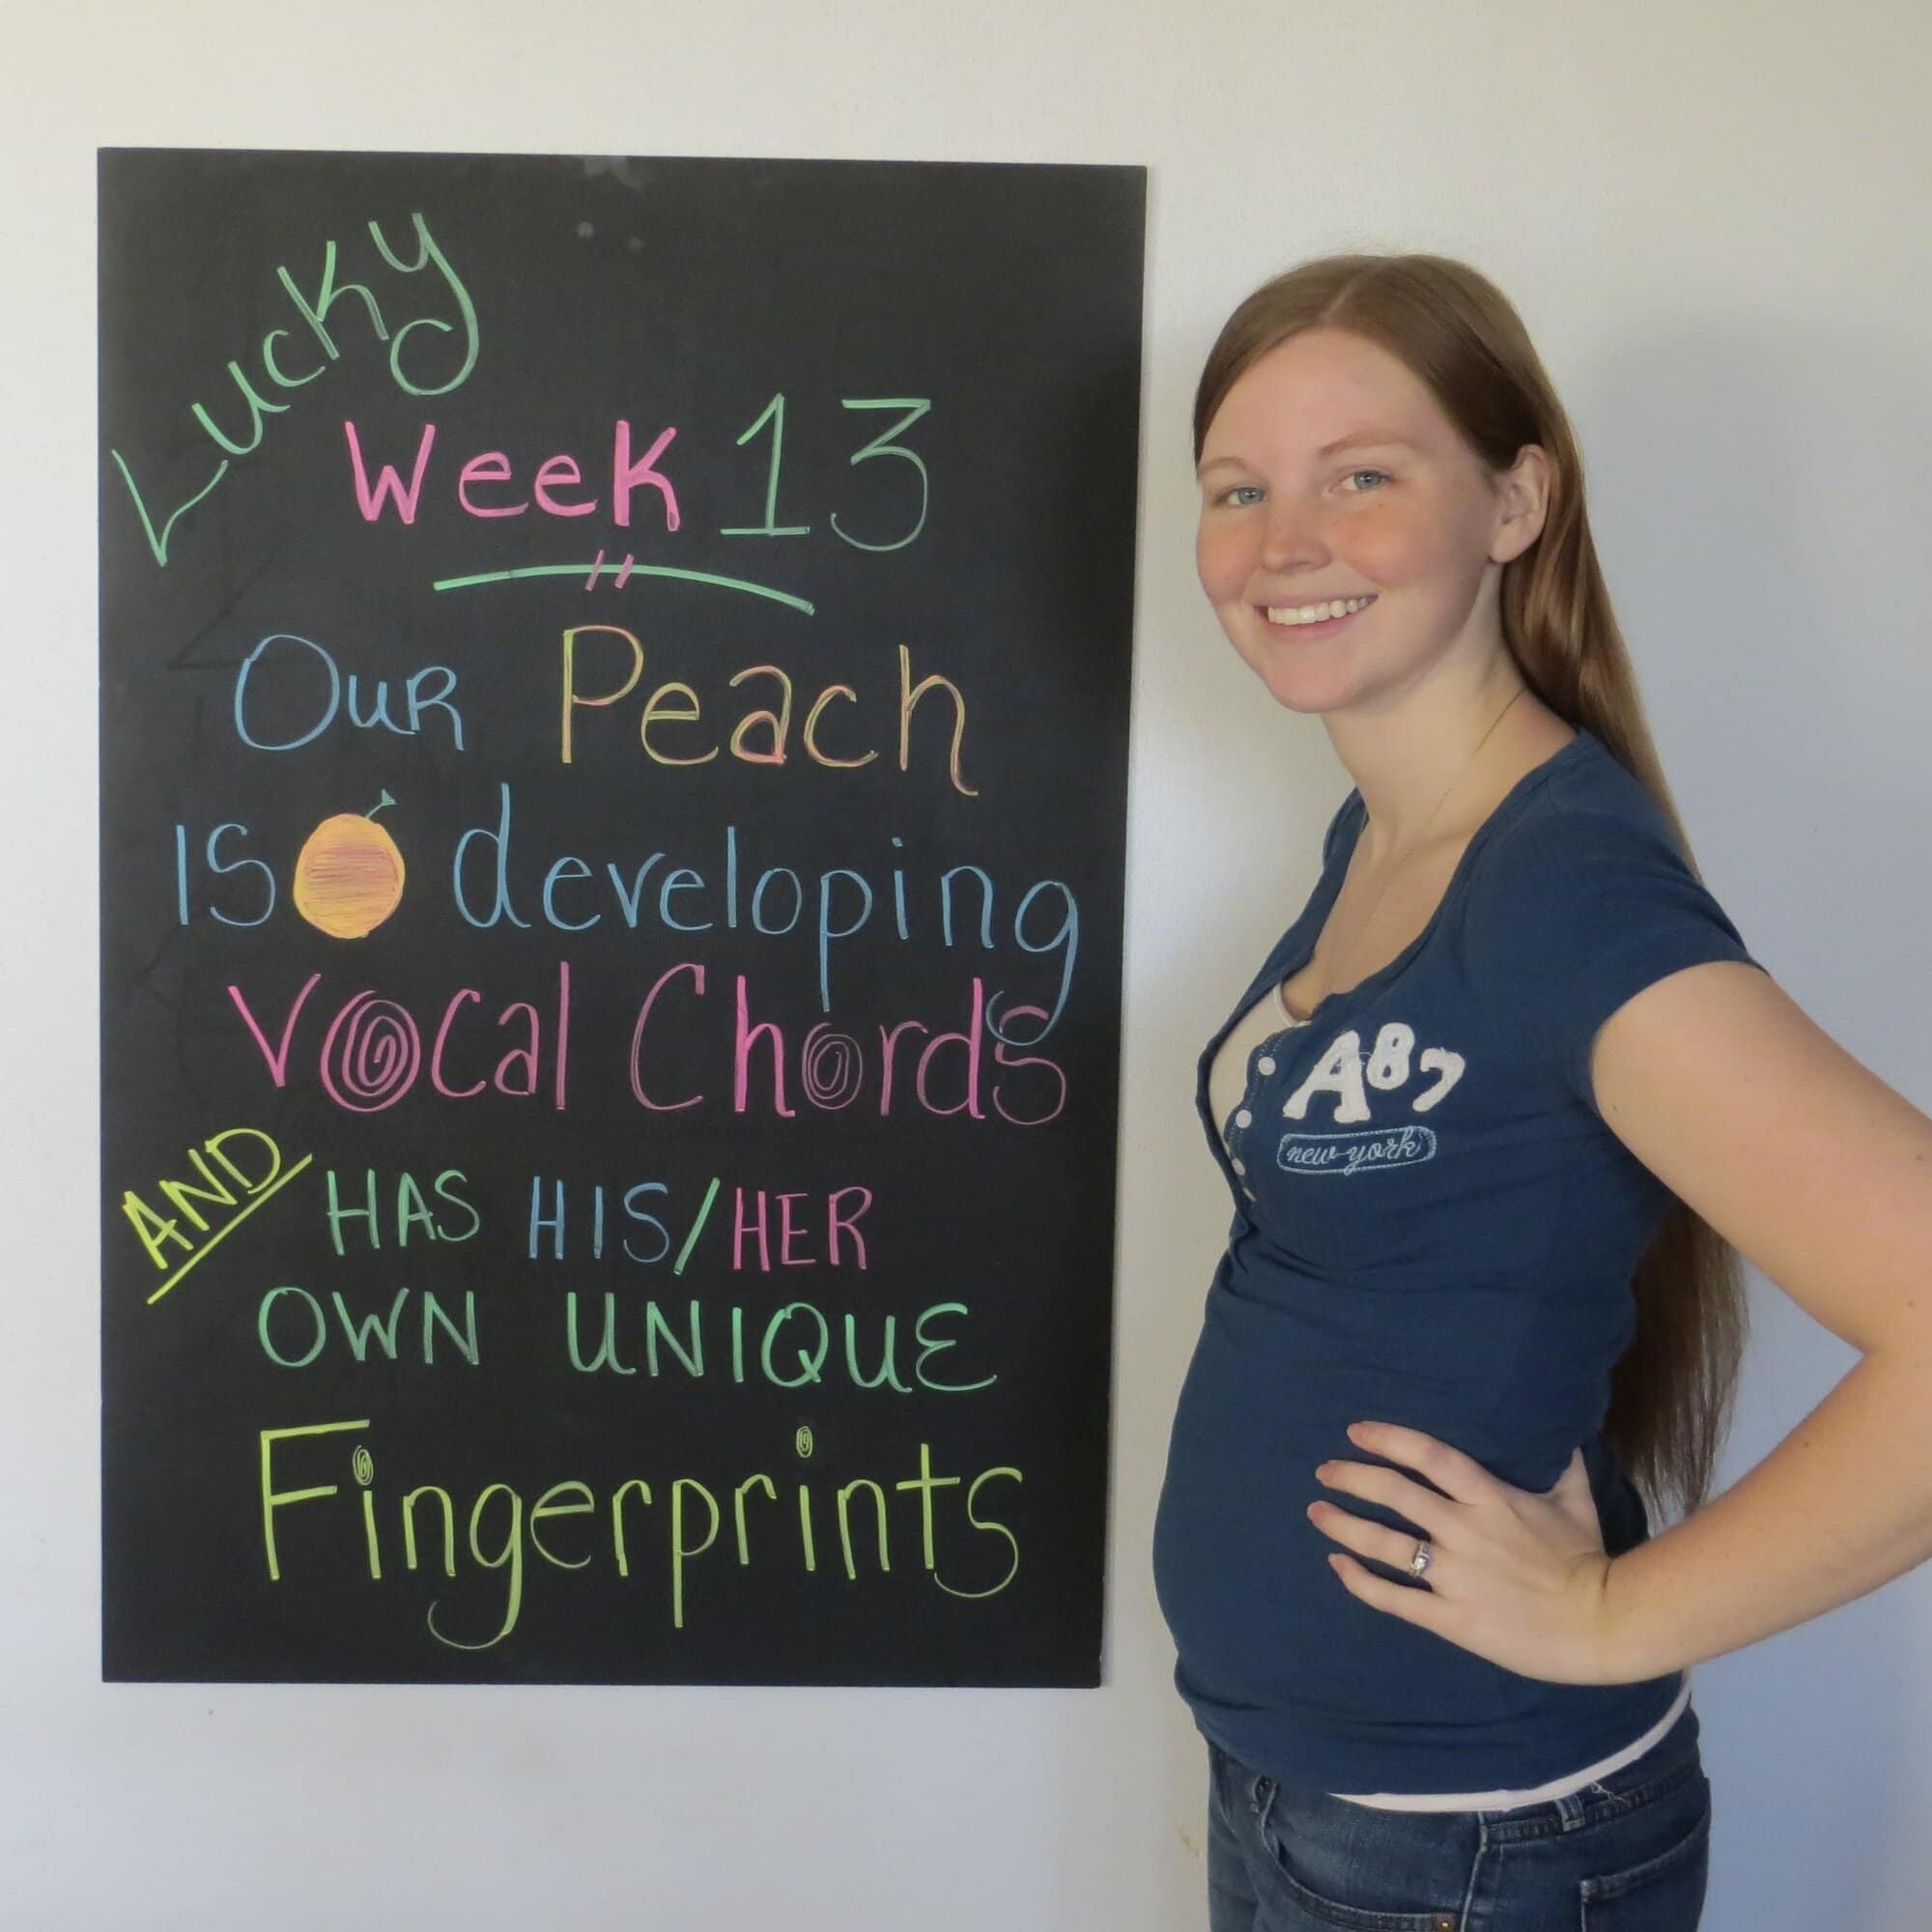 Lucky
Week 13
Our Peach
IS developing
Vocal Chords
AND HAS HIS/HER
OWN UNIQUE
Fingerprints
A87
new-york